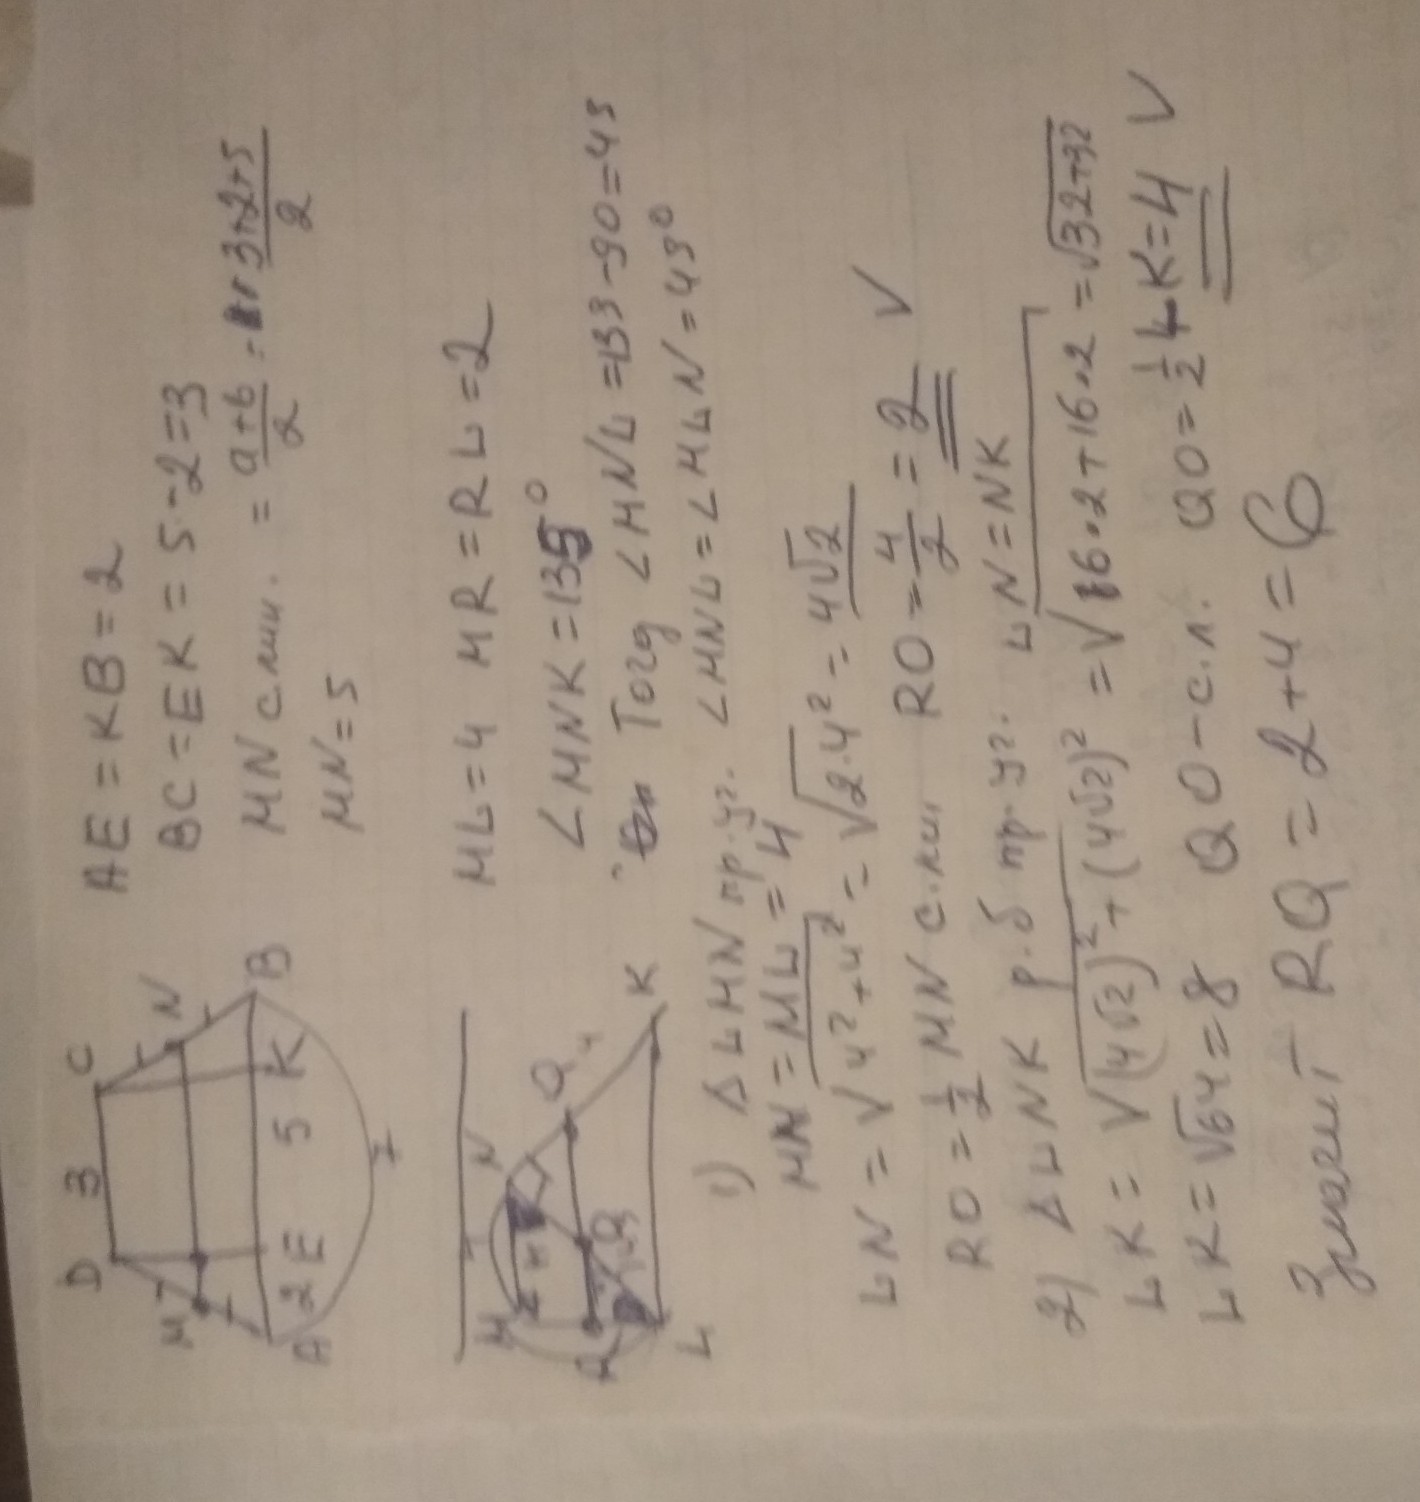 D 3 C
M N
A 2 E 5 K B
7
AE = KB = 2
BC = EK = 5 - 2 = 3
MN с.лин. = \frac{a+b}{2} = \frac{3+2+5}{2}
MN = 5
M N
R O Q
4 4
L K
ML = 4 MR = RL = 2
∠MNK = 135°
Тогд ∠MNL = 135 - 90 = 45
1) Δ LMN пр. уг. ∠MNL = ∠MLN = 45°
MN = ML = 4
LN = √4² + 4² = √2·4² = 4√2
RO = \frac{1}{2} MN с.лин. RO = \frac{4}{2} = 2 V
2) Δ LNK р.б пр. уг. LN = NK
LK = √(4√2)² + (4√2)² = √16·2 + 16·2 = √32+32
LK = √64 = 8 QO - с.л. QO = \frac{1}{2} LK = 4 V
Значит RQ = 2 + 4 = 6